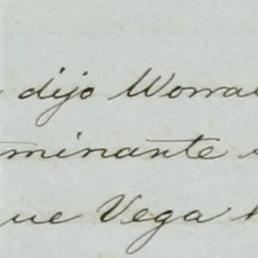 dijo Worra
minante
ue Vega